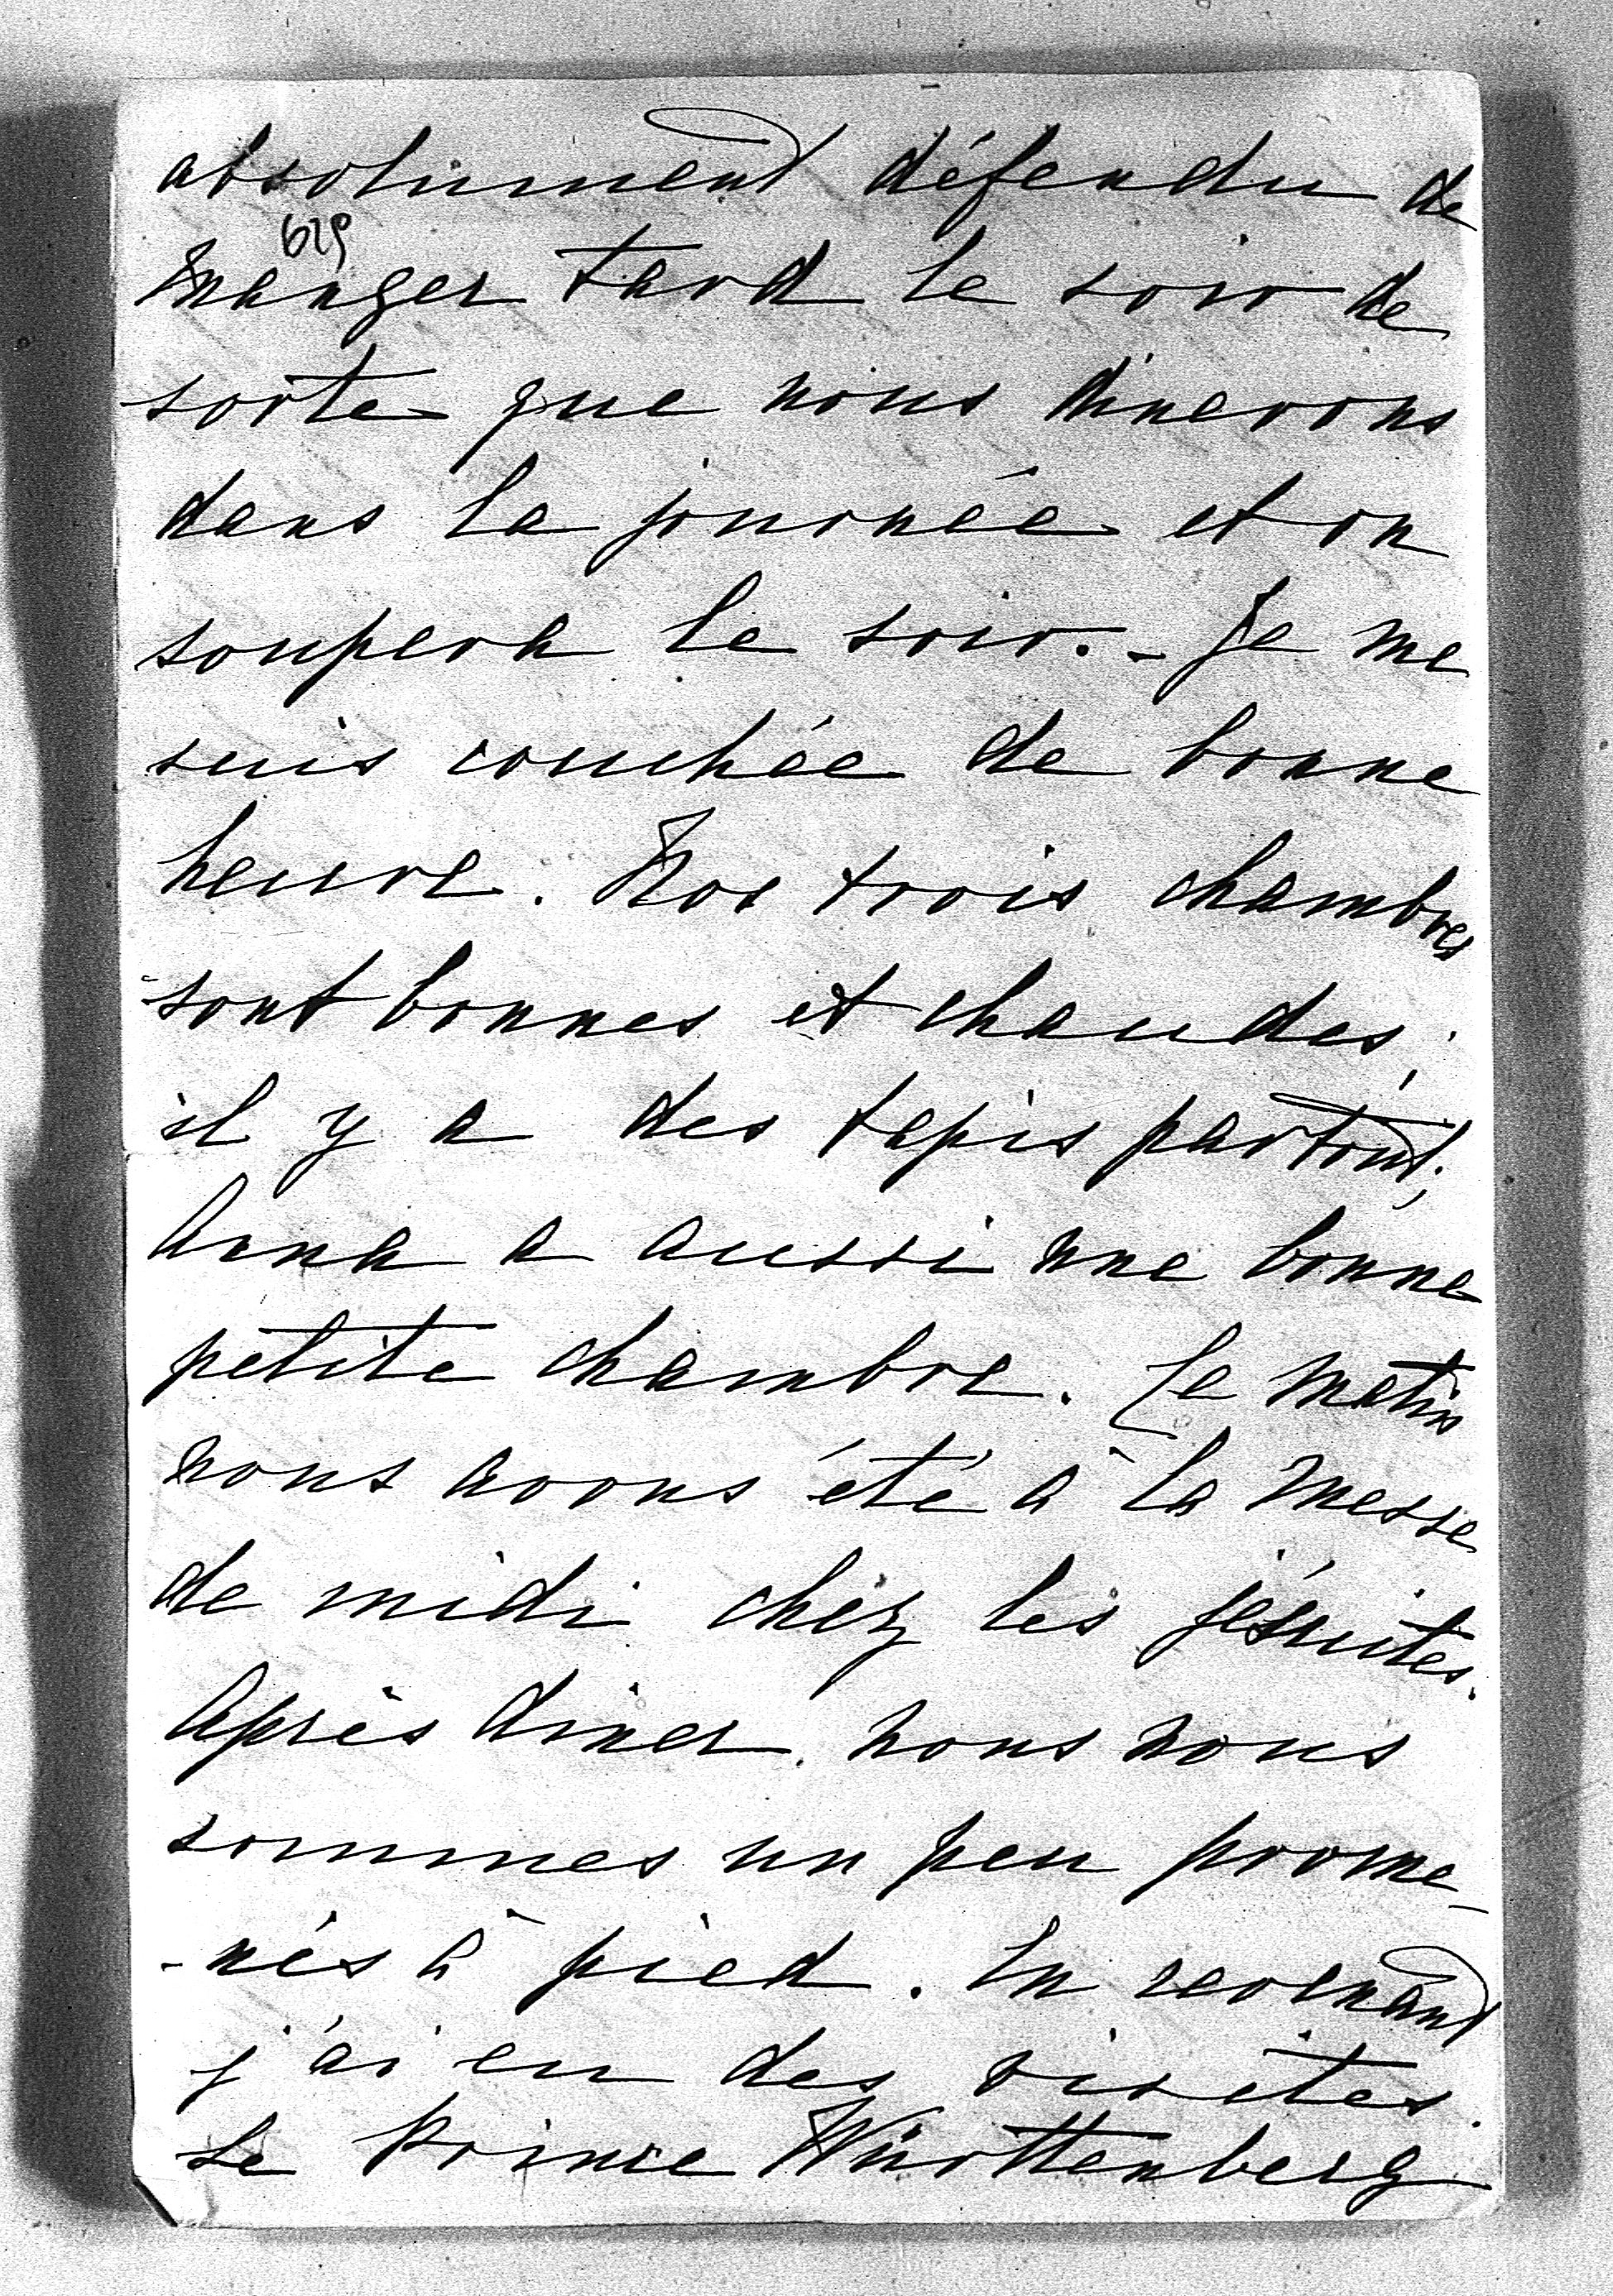 absolument défendu de
629
manger tard le soir de
sorte que nous dinerons
dans la journée et on
soupera le soir. - Je me
suis couchée de bonne
heure. Nos trois chambres
sont bonnes et chaudes,
il y a des tapis partout;
Anna a aussi une bonne
petite chambre. Le matin
nous avons été à la messe
de midi chez les jésuites.
Après diner nous nous
sommes un peu prome-
-nés à pied. En revenant
j'ai eu des visites.
Le Prince Württenberg